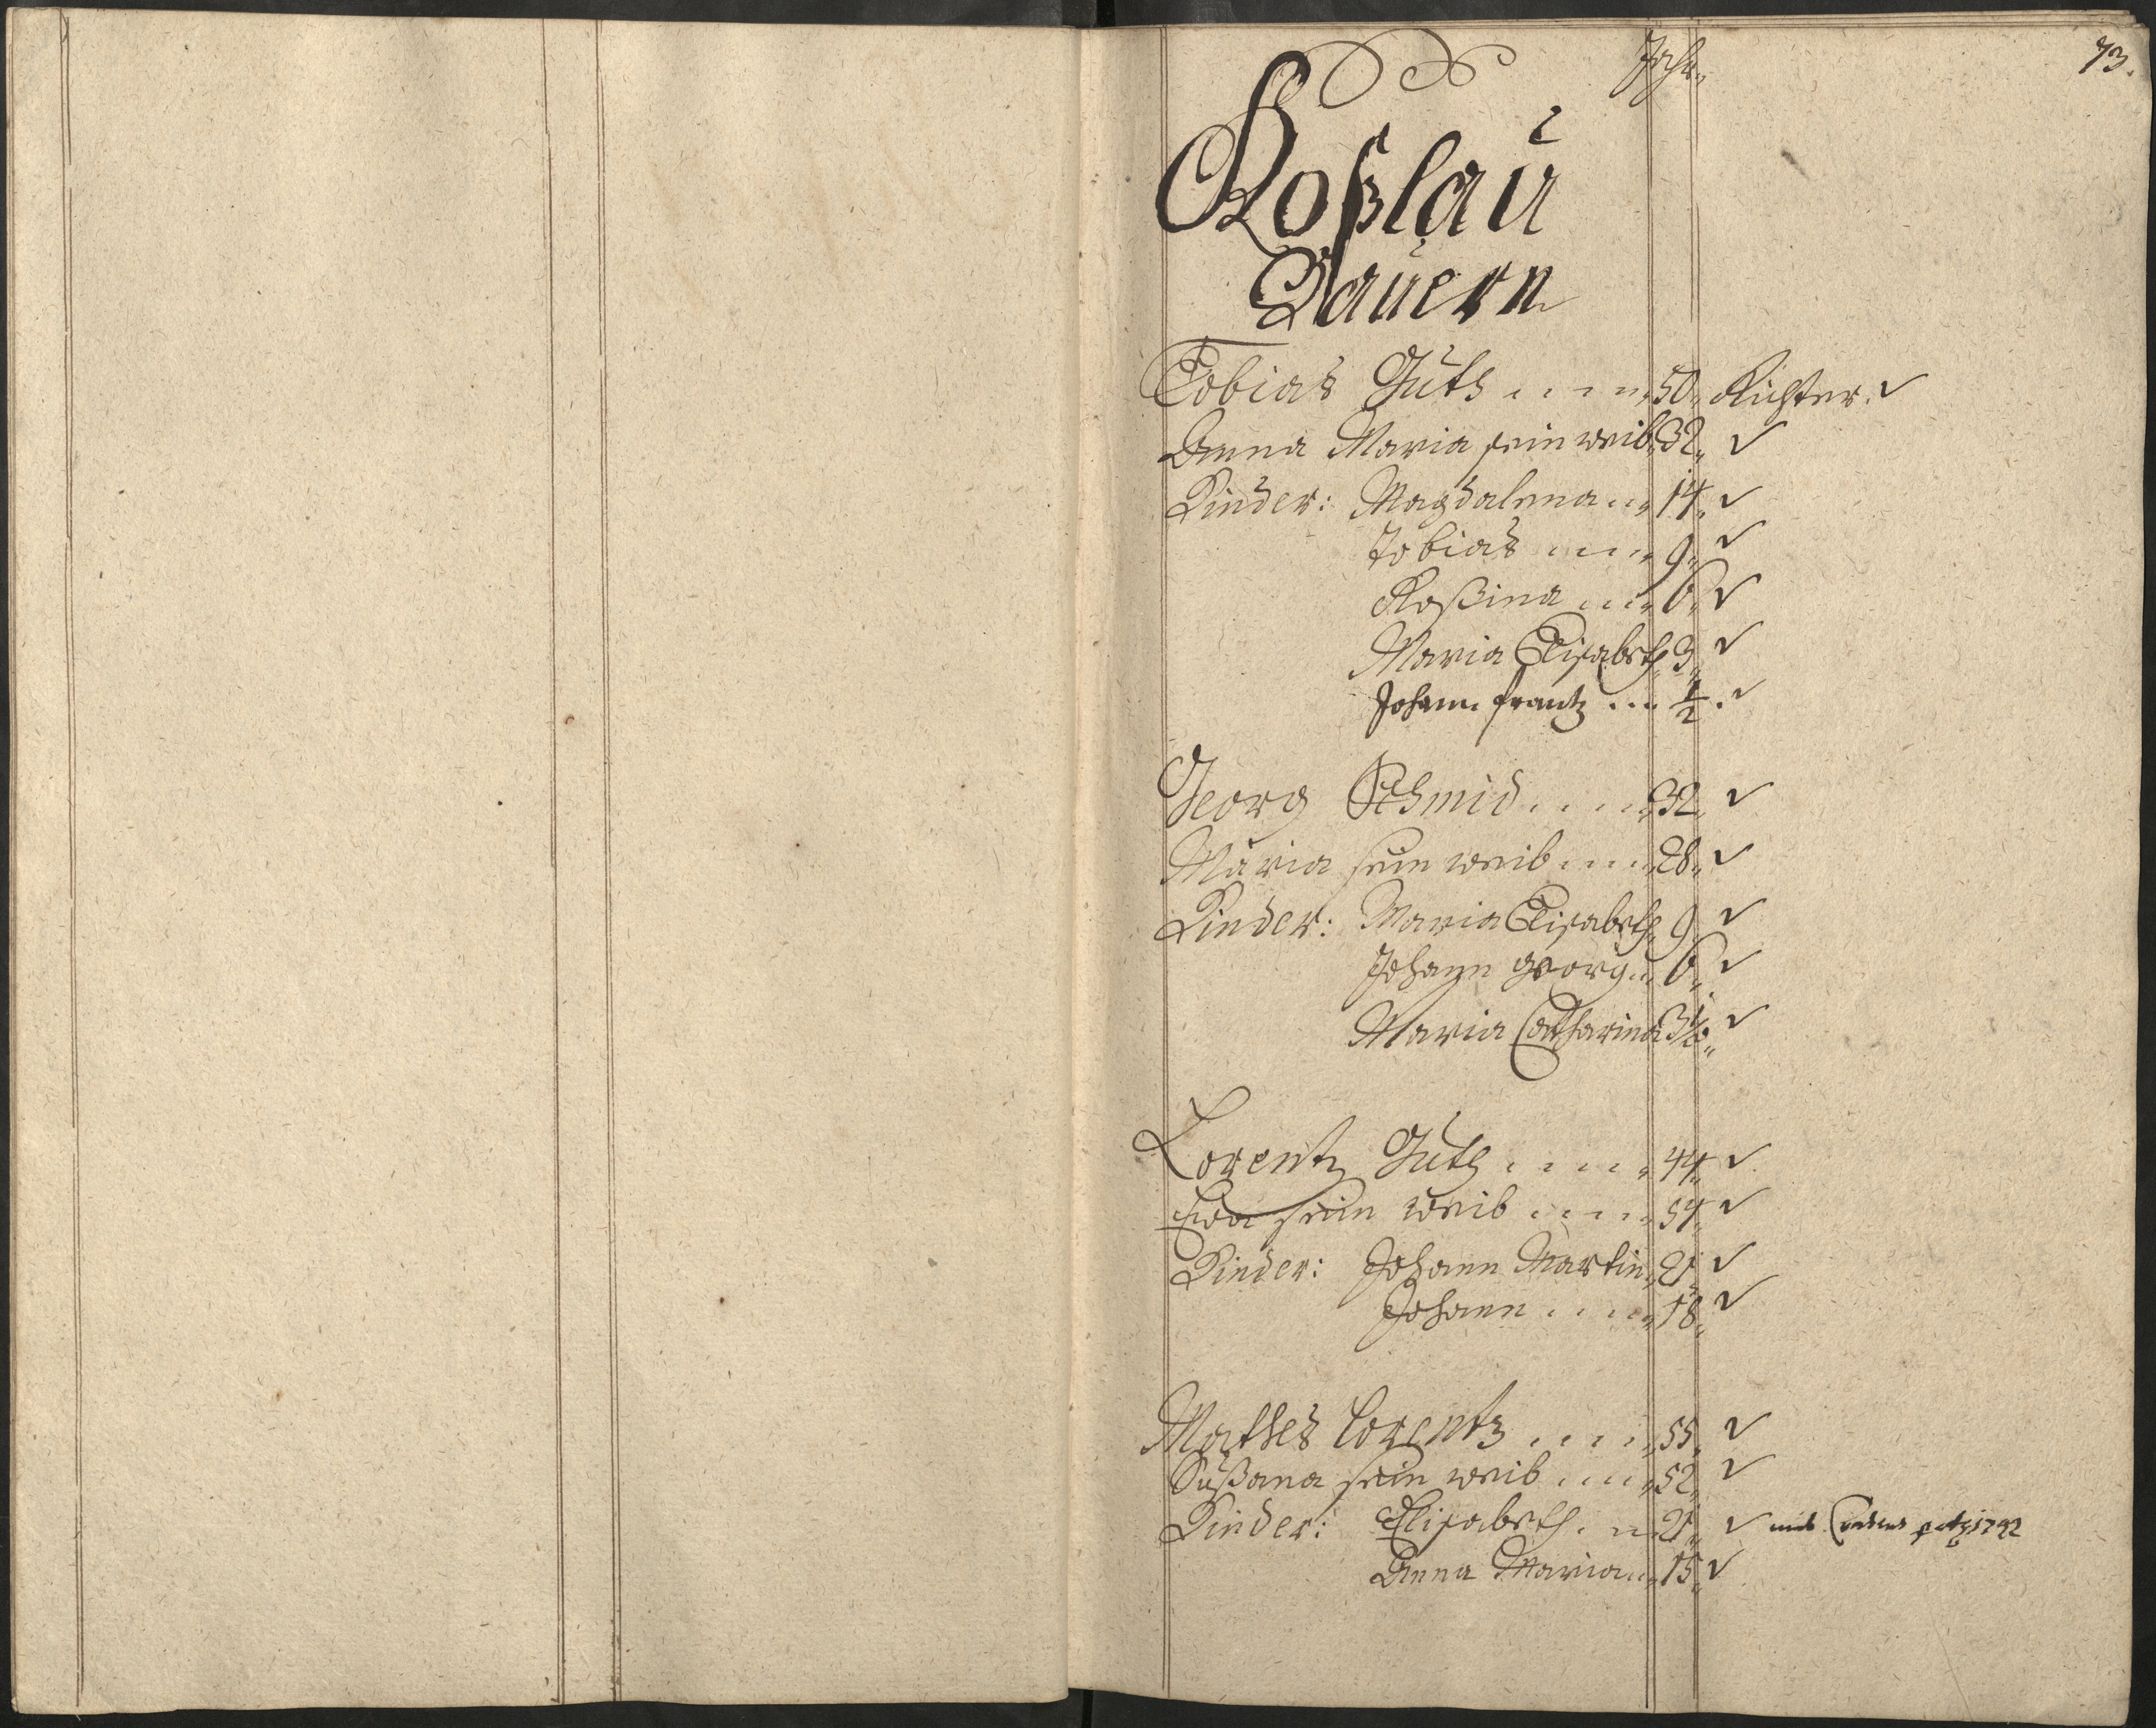 Jahr
73.
Roßlau
Bauern
Tobias Guth .... 50. Richter. ✓
Anna Maria sein weib 32. ✓
Kinder: Magdalena ... 14. ✓
Tobias .... 9. ✓
Roßina .... 6. ✓
Maria Elisabeth 3. ✓
Johann frantz ... ½. ✓
Georg Schmid .... 32. ✓
Maria sein weib .... 28. ✓
Kinder: Maria Elisabeth 9. ✓
Johann georg .. 6. ✓
Maria Catharina 3½. ✓
Lorentz Guth .... 44. ✓
Eva sein weib .... 54. ✓
Kinder: Johann Martin 21. ✓
Johann .... 18. ✓
Mathes Lorentz .... 55. ✓
Sußana sein weib .... 52. ✓
Kinder: Elisabeth .. 21. ✓ mit
Anna Maria .. 15. ✓